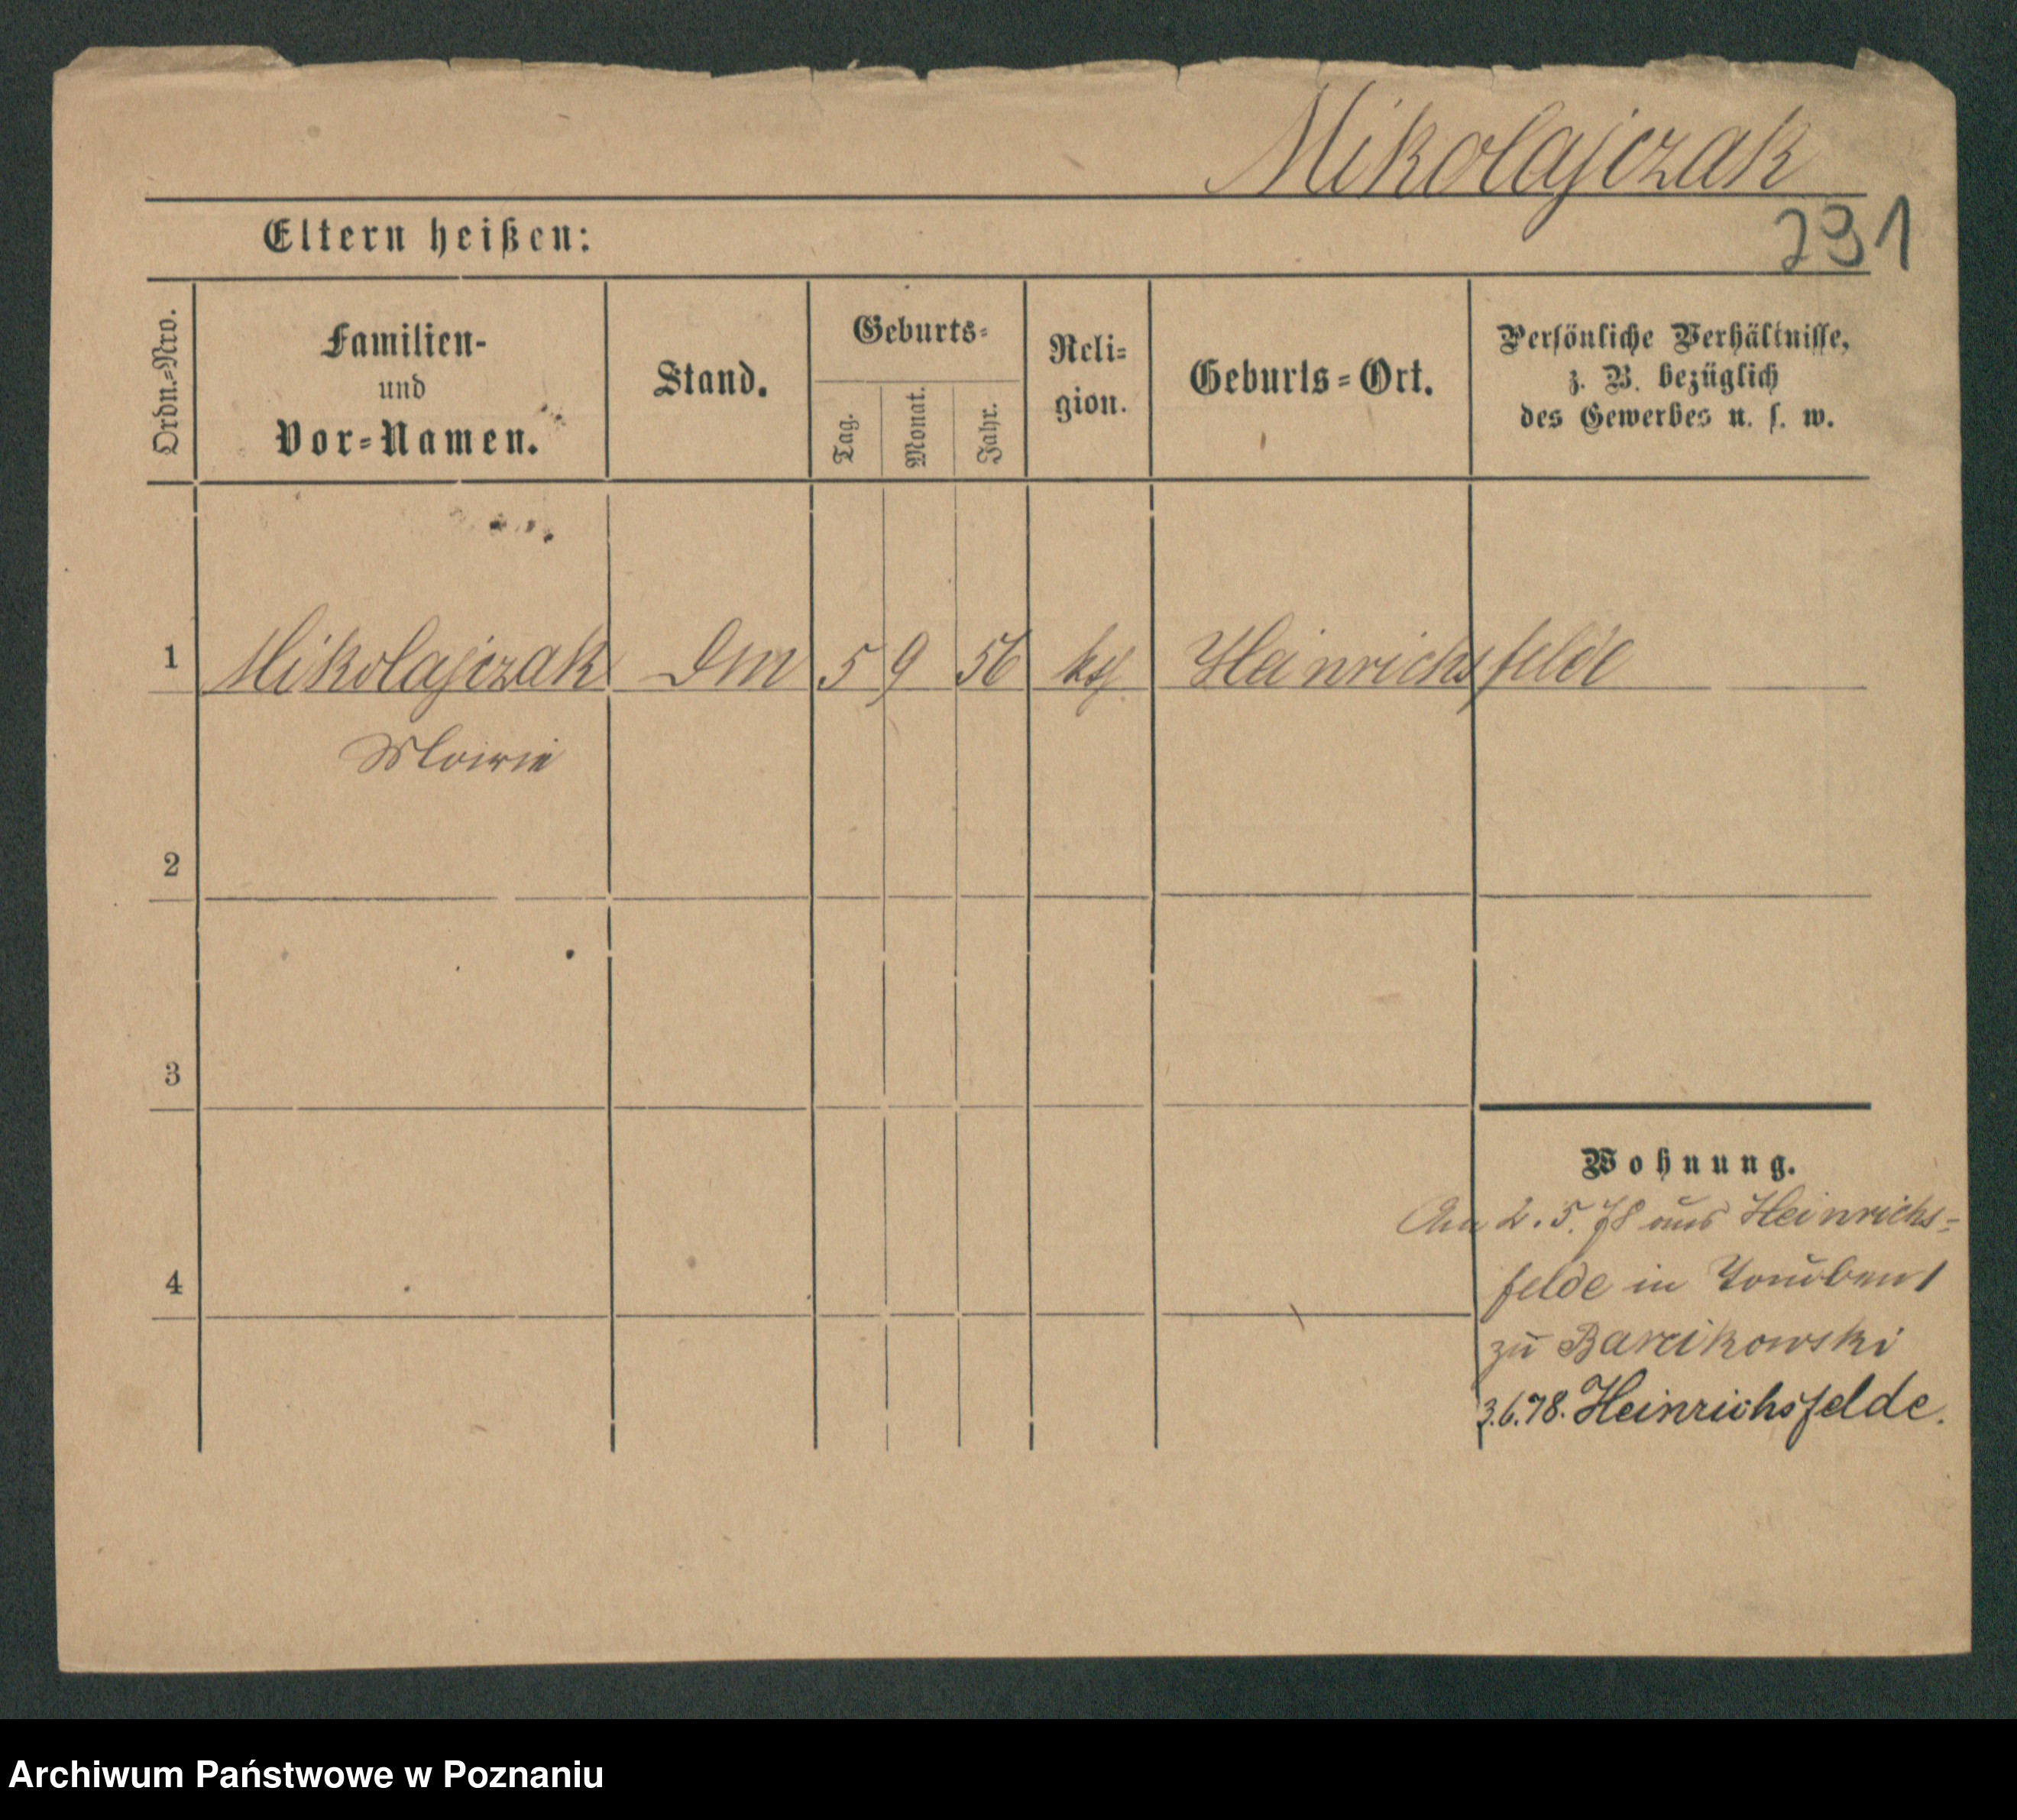 Mikolajczak
231
Eltern heißen:
Ordn.-Nro.
Familien-
und
Vor-Namen.
Stand.
Geburts-
Tag.
Monat.
Jahr.
Reli-
gion.
Geburts-Ort.
Persönliche Verhältnisse,
z. B. bezüglich
des Gewerbes u. s. w.
1 Mikolajczak Dm 5 9 56 kth Heinrichsfelde
Marie
2
3
4
Wohnung.
Am 2.5.78 aus Heinrichs-
felde in Tauben 1
zu Barcikowski
3.6.78. Heinrichsfelde.
Archiwum Państwowe w Poznaniu